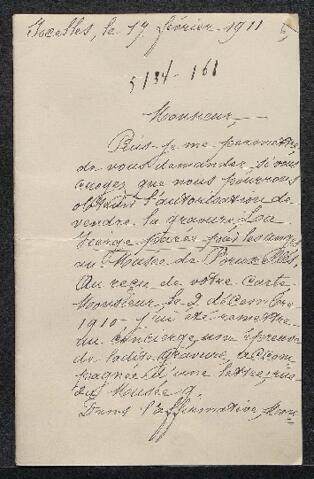 Ixelles, le 17 février 1911
5134-161
Monsieur,
Puis-je me permettre,
de vous demander, si vous
croyez que nous pourrons
obtenir l'autorisation de
vendre la gravure,
au Musée de
Au reçu de votre carte
Monsieur le 2 décembre
1910 j'ai été remettre
au concierge, une épreuve
de ladite gravure, accom
pagnée d'une lettre, rue
du Musée 9.
Dans l'affirmative, Mon-